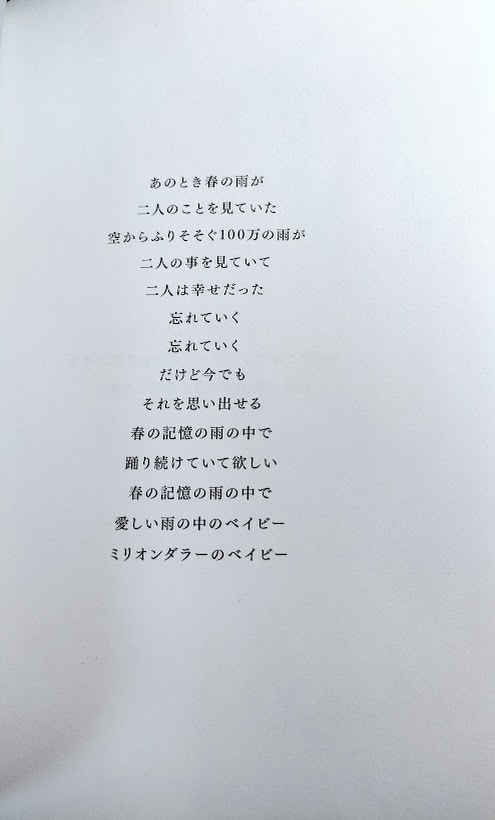 あのとき春の雨が
二人のことを見ていた
空からふりそそぐ100万の雨が
二人の事を見ていて
二人は幸せだった
忘れていく
忘れていく
だけど今でも
それを思い出せる
春の記憶の雨の中で
踊り続けていて欲しい
春の記憶の雨の中で
愛しい雨の中のベイビー
ミリオンダラーのベイビー